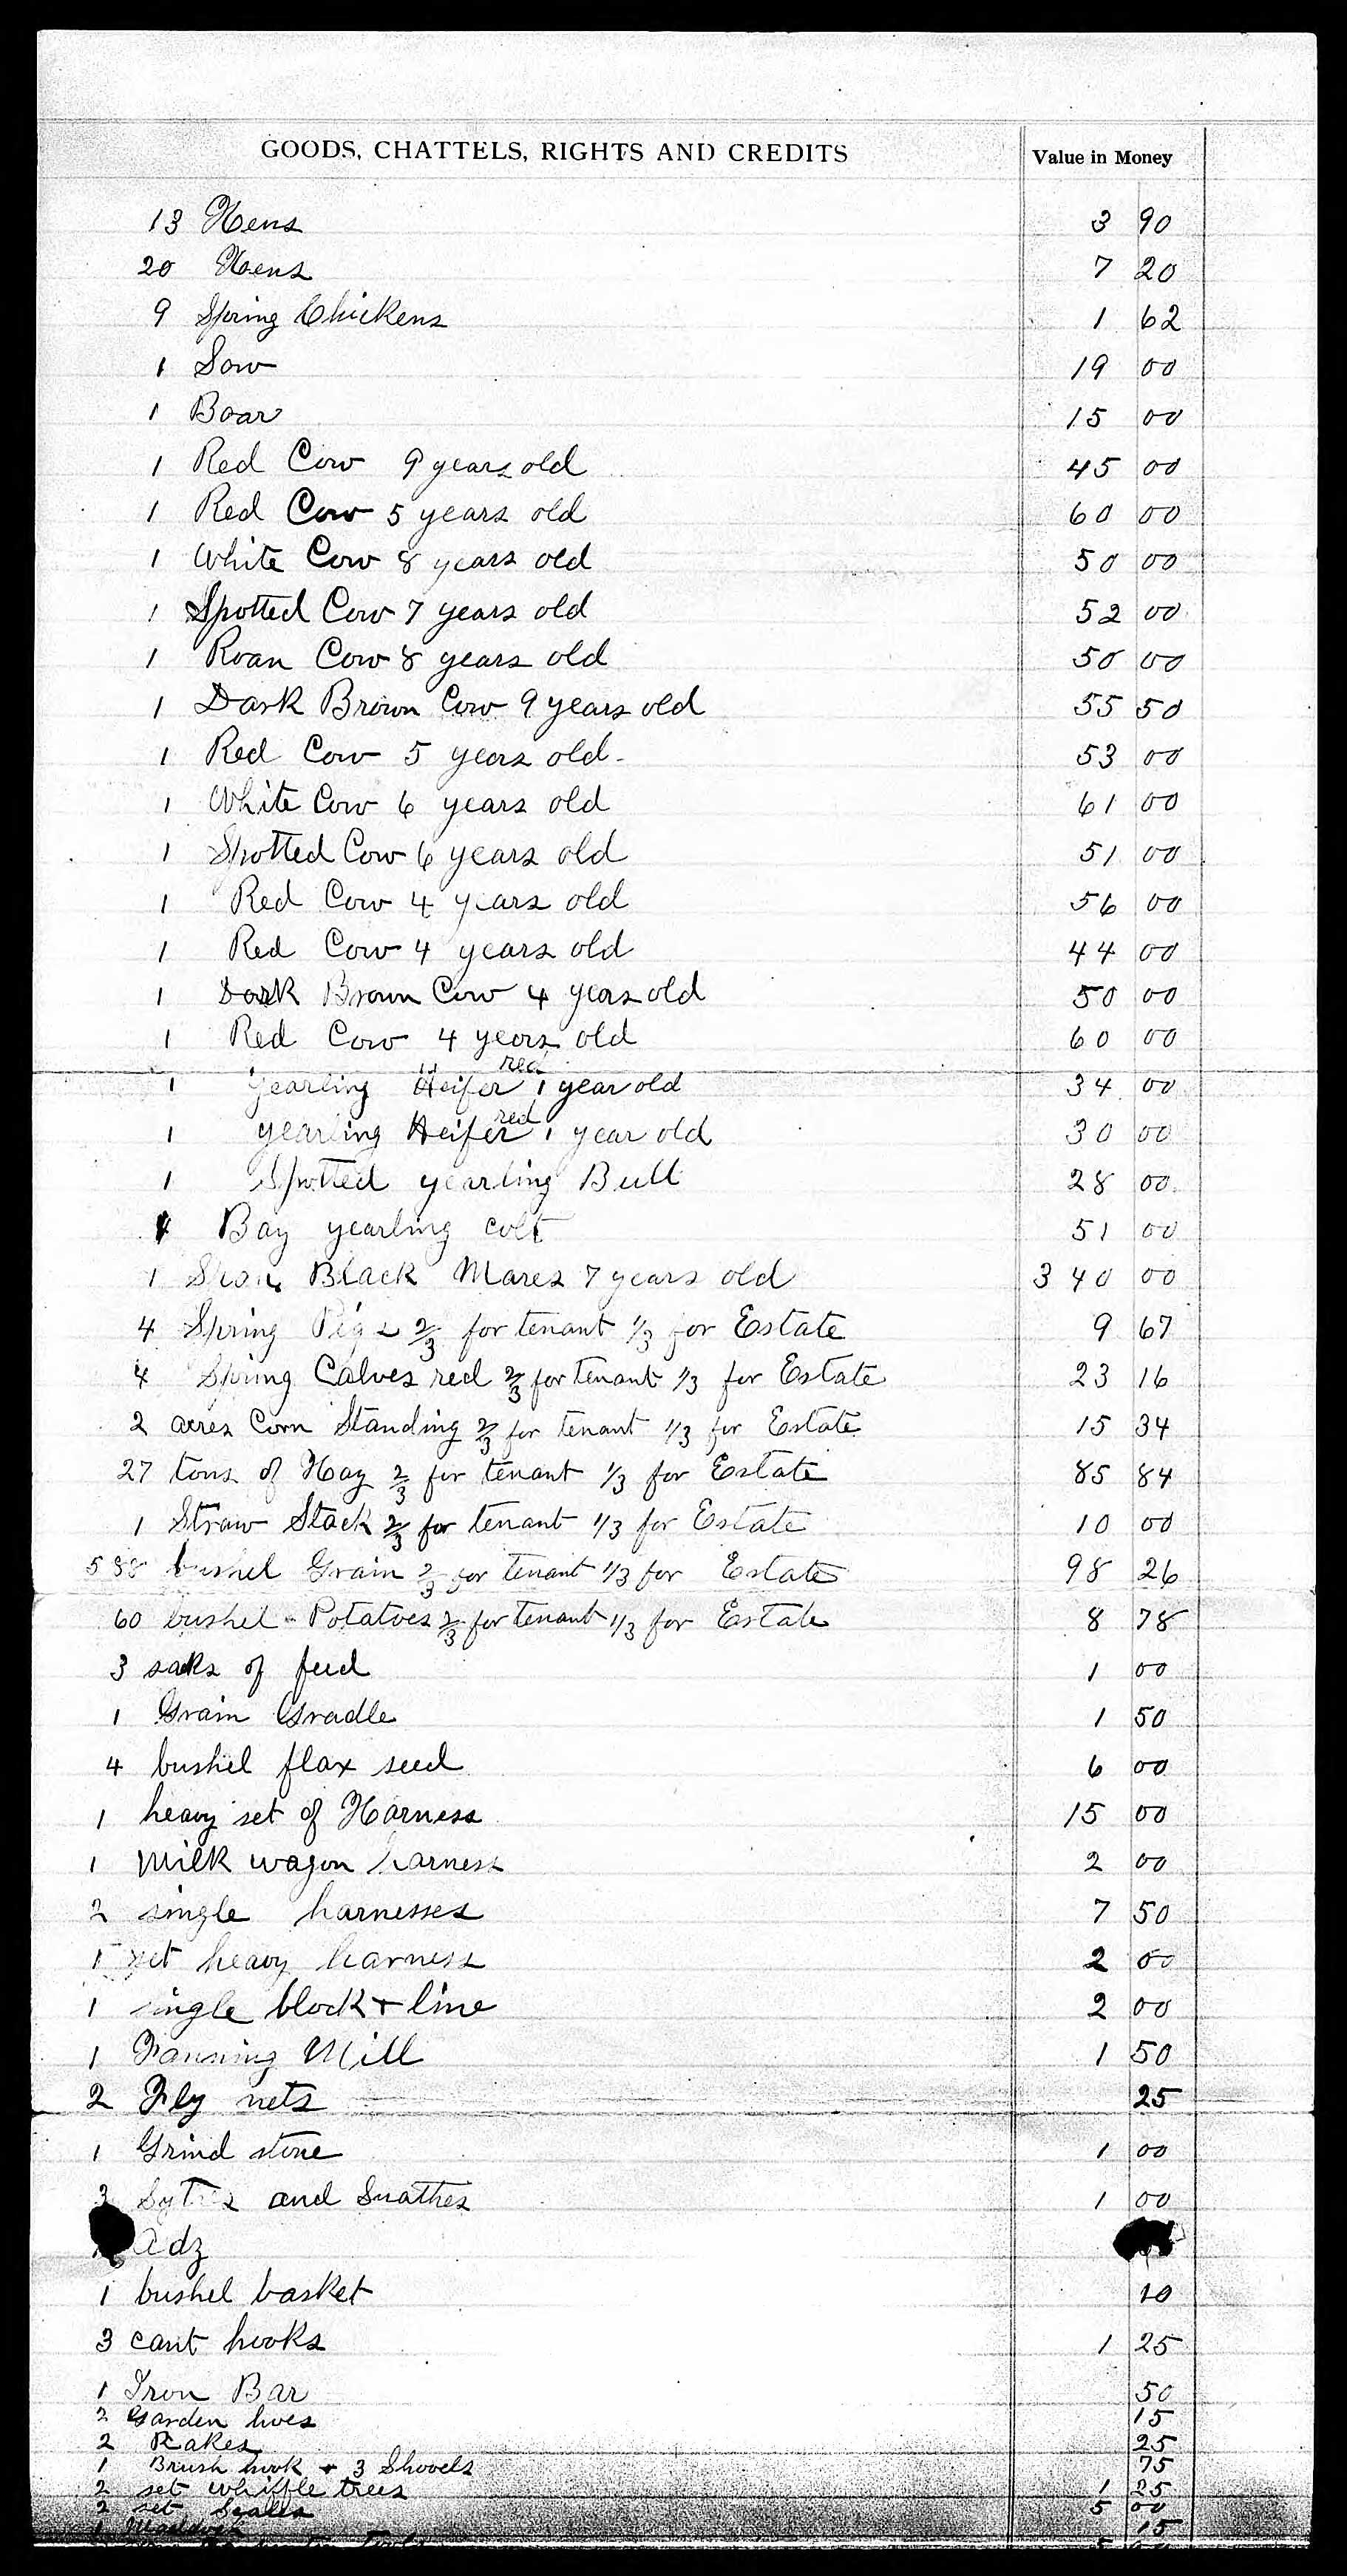 GOODS, CHATTELS, RIGHTS AND CREDITS Value in Money
13 Hens 3 90
20 Hens 7 20
9 Spring Chickens 1 62
1 Sow 19 00
1 Boar 15 00
1 Red Cow 9 years old 45 00
1 Red Cow 5 years old 60 00
1 White Cow 8 years old 50 00
1 Spotted Cow 7 years old 52 00
1 Roan Cow 8 years old 50 00
1 Dark Brown Cow 9 years old 55 50
1 Red Cow 5 years old - 53 00
1 White Cow 6 years old 61 00
1 Spotted Cow 6 years old 51 00
1 Red Cow 4 years old 56 00
1 Red Cow 4 years old 44 00
1 Dark Brown Cow 4 years old 50 00
1 Red Cow 4 years old 60 00
1 yearling Heifer red 1 year old 34 00
1 yearling Heifer red 1 year old 30 00
1 Spotted yearling Bull 28 00
Bay yearling colt 51 00
1 Black Mares 7 years old 340 00
4 Spring Pigs 2/3 for tenant 1/3 for Estate 9 67
4 Spring Calves red 2/3 for tenant 1/3 for Estate 23 16
2 acres Corn Standing 2/3 for tenant 1/3 for Estate 15 34
27 tons of Hay 2/3 for tenant 1/3 for Estate 85 84
1 Straw Stack 2/3 for tenant 1/3 for Estate 10 00
588 bushel Grain 2/3 for tenant 1/3 for Estate 98 26
60 bushel Potatoes 2/3 for tenant 1/3 for Estate 8 78
3 saks of feed 1 00
1 Grain Gradle 1 50
4 bushel flax seed 6 00
1 heavy set of Harness 15 00
1 Milk wagon harness 2 00
2 single harnesses 7 50
1 set heavy harness 2 00
1 single block + line 2 00
1 Fanning Mill 1 50
2 Fly nets 25
1 Grind stone 1 00
3 Sythes and Snathes 1 00
Adz
1 bushel basket 10
3 cant hooks 1 25
1 Iron Bar 50
2 Garden hoes 15
2 Rakes 25
1 Brush hook + 3 Shovels 75
2 set whiffle trees 1 25
2 set Scales 5 00
1 15